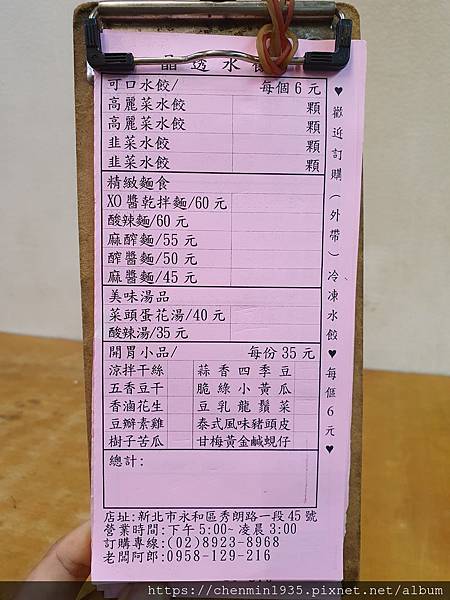 晶透水餃
可口水餃/ 每個6元
高麗菜水餃 顆
高麗菜水餃 顆
韭菜水餃 顆
韭菜水餃 顆
精緻麵食
XO醬乾拌麵/60元
酸辣麵/60元
麻醡麵/55元
醡醬麵/50元
麻醬麵/45元
美味湯品
菜頭蛋花湯/40元
酸辣湯/35元
開胃小品/ 每份35元
涼拌干絲 蒜香四季豆
五香豆干 脆綠小黃瓜
香滷花生 豆乳龍鬚菜
豆瓣素雞 泰式風味豬頭皮
樹子苦瓜 甘梅黃金鹹蜆仔
總計:
♥歡迎訂購(外帶)冷凍水餃♥每個6元♥
店址:新北市永和區秀朗路一段45號
營業時間:下午5:00~凌晨3:00
訂購專線:(02)8923-8968
老闆阿郎:0958-129-216
https://chenmin1935.pixnet.net/album